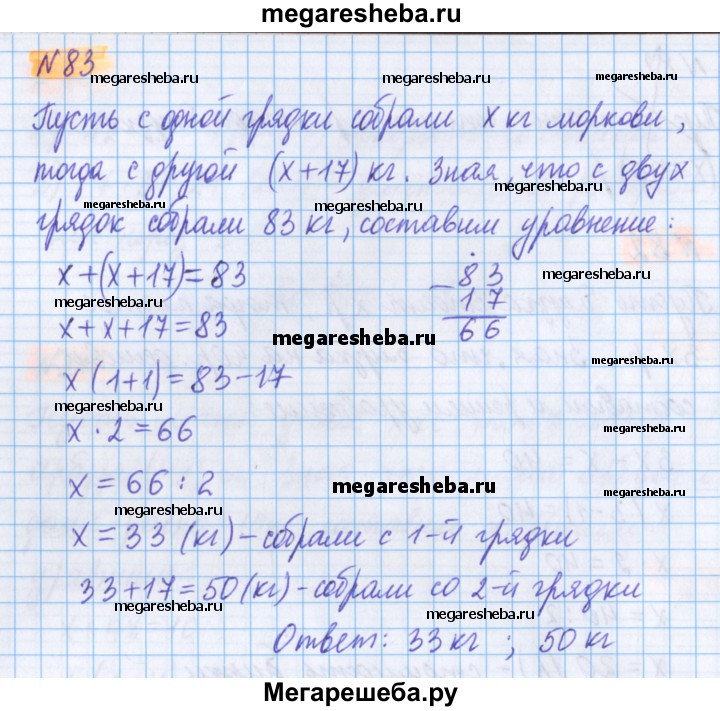 megaresheba.ru
№83
megaresheba.ru megaresheba.ru megaresheba.ru
Пусть с одной грядки собрали x кг моркови,
megaresheba.ru
тогда с другой (x+17) кг. Зная, что с двух
megaresheba.ru megaresheba.ru megaresheba.ru
грядок собрали 83 кг, составим уравнение:
x+(x+17)=83
83
megaresheba.ru megaresheba.ru
- 17
x+x+17=83
66
megaresheba.ru megaresheba.ru
x(1+1)=83-17
megaresheba.ru megaresheba.ru
x·2=66
x=66:2
megaresheba.ru megaresheba.ru
megaresheba.ru
x=33 (кг)-собрали с 1-й грядки
33+17=50(кг)-собрали со 2-й грядки
megaresheba.ru megaresheba.ru
Ответ: 33 кг ; 50 кг
Мегарешеба.ру